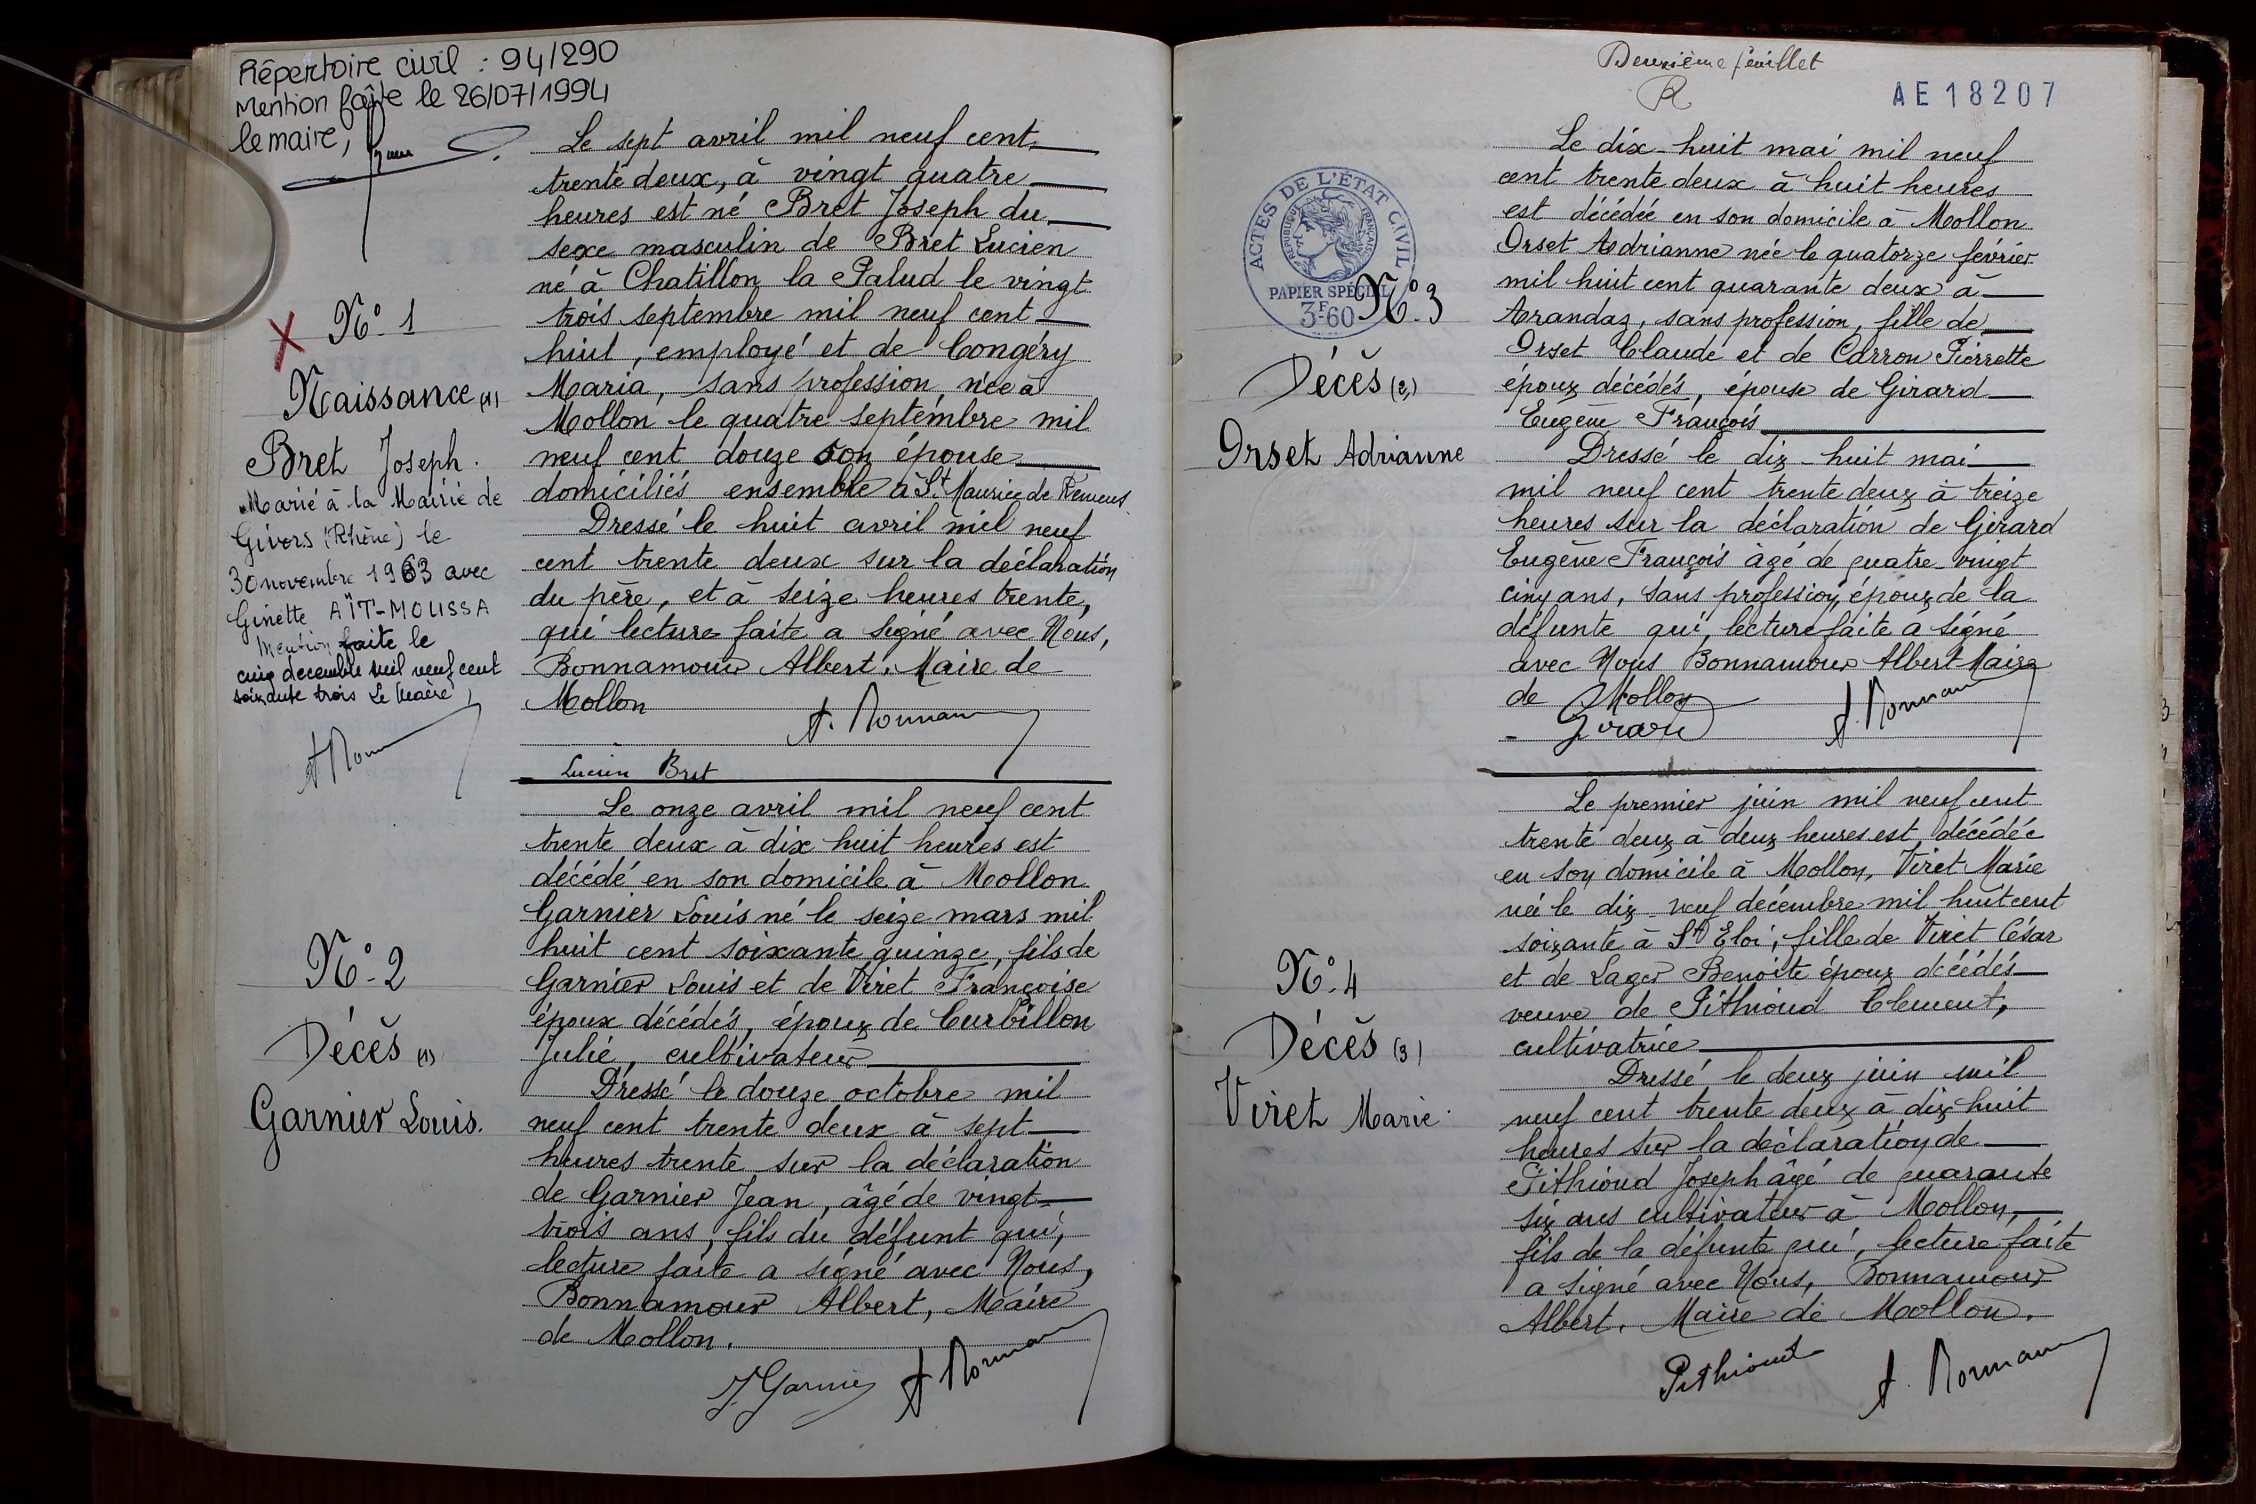 Répertoire civil : 94/290
Mention faite le 26/07/1994
le maire,
N° 1
Naissance (1)
Bret Joseph.
Marié à la Mairie de
Givors (Rhône) le
30 novembre 1963 avec
Ginette AÏT-MOUSSA
Mention faite le
cinq décembre mil neuf cent
soixante trois Le Maire
Le sept avril mil neuf cent
trente deux, à vingt quatre
heures est né Bret Joseph du
sexe masculin de Bret Lucien
né à Chatillon la Palud le vingt
trois septembre mil neuf cent
huit, employé et de Congéry
Maria, sans profession, née à
Mollon le quatre septembre mil
neuf cent douze son épouse
domiciliés ensemble à St Maurice de Remens.
Dressé le huit avril mil neuf
cent trente deux sur la déclaration
du père, et à seize heures trente,
qui lecture faite a signé avec Nous,
Bonnamour Albert, Maire de
Mollon
Lucien Bret
N° 2
Décès (1)
Garnier Louis.
Le onze avril mil neuf cent
trente deux à dix huit heures est
décédé en son domicile à Mollon
Garnier Louis né le seize mars mil
huit cent soixante quinze, fils de
Garnier Louis et de Viret Françoise
époux décédés, époux de Curbillon
Julie, cultivateur
Dressé le douze octobre mil
neuf cent trente deux à sept
heures trente sur la déclaration
de Garnier Jean, âgé de vingt-
trois ans, fils du défunt qui,
lecture faite a signé avec Nous,
Bonnamour Albert, Maire
de Mollon.
J Garnier
Deuxième feuillet
AE18207
ACTES DE L'ÉTAT CIVIL
RÉPUBLIQUE FRANÇAISE
PAPIER SPÉCIAL
3F60
N° 3
Décès (2)
Orset Adrianne
Le dix-huit mai mil neuf
cent trente deux à huit heures
est décédée en son domicile à Mollon
Orset Adrianne née le quatorze février
mil huit cent quarante deux à
Arandas, sans profession, fille de
Orset Claude et de Carron Pierrette
époux décédés, épouse de Girard
Eugène François
Dressé le dix-huit mai
mil neuf cent trente deux à treize
heures sur la déclaration de Girard
Eugène François âgé de quatre-vingt
cinq ans, sans profession, époux de la
défunte qui, lecture faite a signé
avec Nous Bonnamour Albert Maire
de Mollon
Girard
N° 4
Décès (3)
Viret Marie.
Le premier juin mil neuf cent
trente deux à deux heures est décédée
en son domicile à Mollon, Viret Marie
née le dix-neuf décembre mil huit cent
soixante à St Eloi, fille de Viret César
et de Lager Benoite époux décédés
veuve de Pithioud Clement,
cultivatrice
Dressé le deux juin mil
neuf cent trente deux à dix huit
heures sur la déclaration de
Pithioud Joseph âgé de quarante
six ans cultivateur à Mollon,
fils de la défunte qui, lecture faite
a signé avec Nous, Bonnamour
Albert, Maire de Mollon.
Pithioud